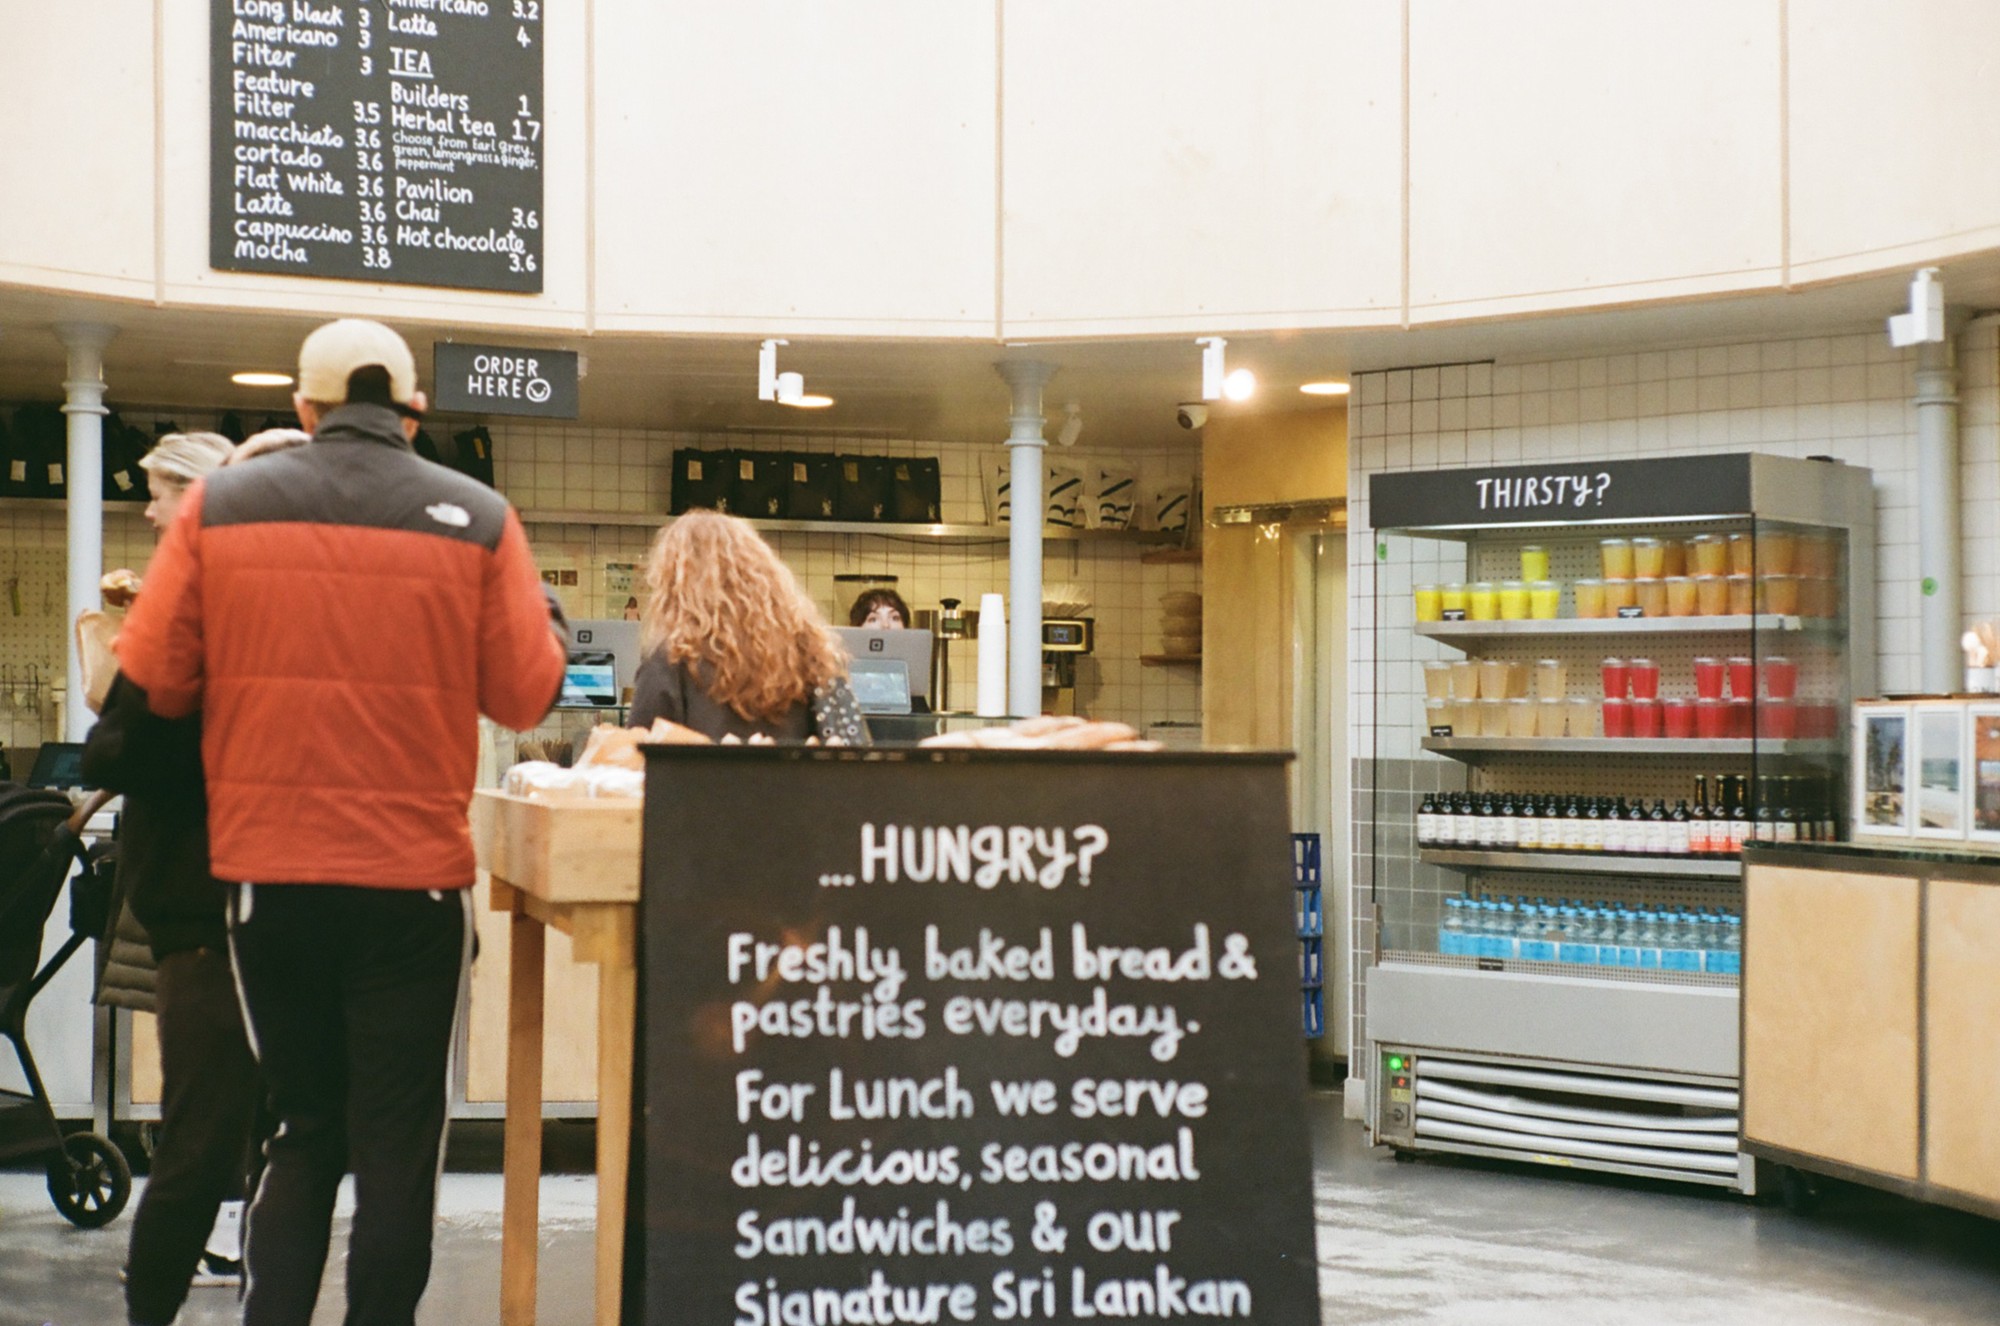 Long black 3
Americano 3
Filter 3
Feature
Filter 3.5
macchiato 3.6
cortado 3.6
Flat white 3.6
Latte 3.6
cappuccino 3.6
Mocha 3.8
Americano 3.2
Latte 4
TEA
Builders 1
Herbal tea 1.7
choose from Earl grey,
green, lemongrass & ginger,
peppermint
Pavilion
Chai 3.6
Hot chocolate
3.6
ORDER
HERE
THIRSTY?
...HUNGRY?
Freshly baked bread &
pastries everyday.
For Lunch we serve
delicious, seasonal
Sandwiches & our
Signature Sri Lankan